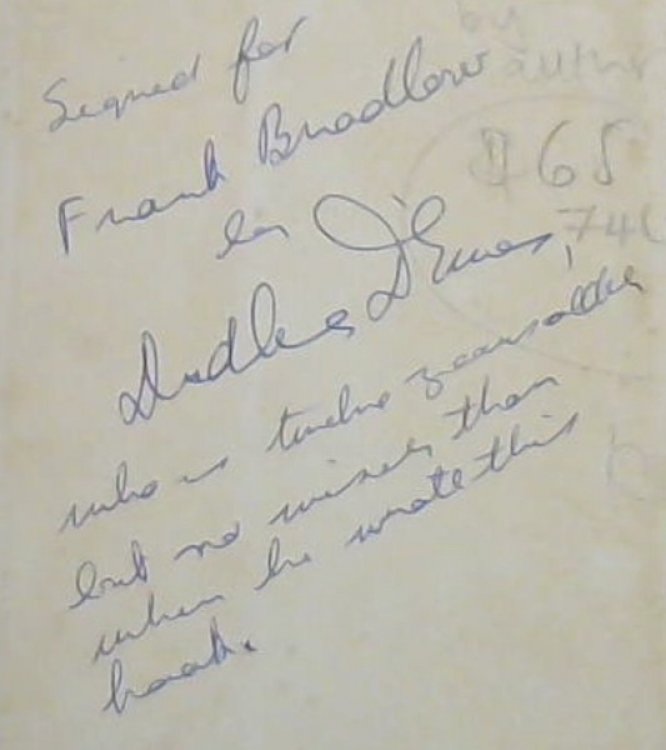 Signed for
Frank Bradlow
by
Dudley D'Ewes,
who is twelve years older
but no wiser than
when he wrote this
book.
by
author
$65